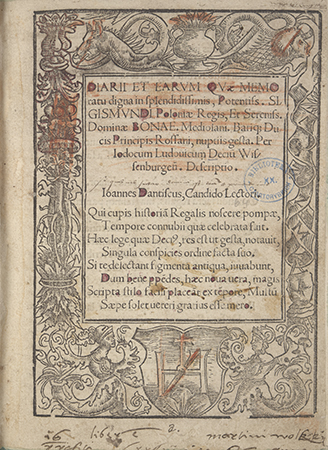 DIARII ET EARVM QVÆ MEMO
ratu digna in splendidissimis, Potentiss. SI
GISMVNDI Poloniæ Regis, Et Sereniss.
Dominæ BONAE. Mediolani. Bariqʒ Du
cis Principis Rossani, nupciis gesta. Per
Iodocum Ludouicum Deciū Wis
senburgeñ. Descriptio.
Ioannes Dantiscus, Candido Lectori.
Qui cupis historiā Regalis noscere pompæ,
Tempore connubii quæ celebrata fuit.
Hæc lege quæ Deciꝰ, res est ut gesta, notauit,
Singula conspicies ordine facta suo.
Si te delectant figmenta antiqua, iuuabunt,
Dum bene ppēdes, hæc noua vera, magis
Scripta stilo facili placeāt ex tēpore, Multū
Sæpe solet veteri gratius esse mero.
BIBLIOTH
XX.